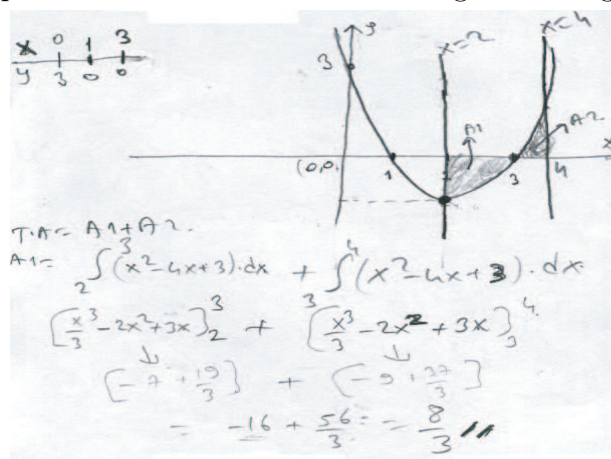 x 0 1 3
y 3 0 0
y
x=2
x=4
3
A1
A2
x
(0,0)
1
3
4
T.A= A1+A2.
A1= ∫₂³ (x²-4x+3).dx + ∫₃⁴ (x²-4x+3).dx
[x³/3 -2x²+3x]₂³ + [x³/3 -2x²+3x]₃⁴
[-7 + 19/3] + [-9 + 37/3]
= -16 + 56/3 = 8/3